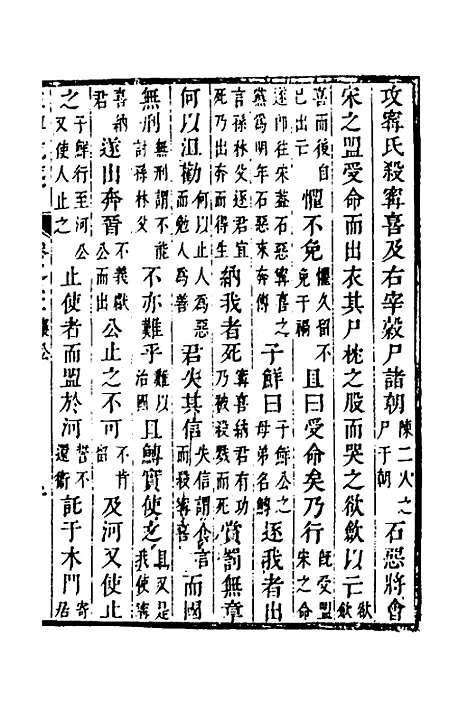 攻甯氏殺甯喜及右宰穀尸諸朝陳二人之尸于朝石惡將會
宋之盟受命而出衣其尸枕之股而哭之欲斂以亡欲斂
喜而後自已出亡懼不免懼久留不免于禍且曰受命矣乃行既受盟宋之命
遂即往宋蓋石惡甯喜之黨為明年石惡來奔傳子鮮曰子鮮公之母弟名鱄逐我者出
言孫林父逐君宜死乃出奔而得生納我者死甯喜納君有功乃被殺戮而死賞罰無章
何以沮勸何以止人為惡而勉人為善君失其信失信謂食言而殺甯喜而國
無刑無刑謂不能討孫林父不亦難乎難以治國且鱄實使之且又是我使甯
喜納君遂出奔晉不義獻公而出公止之不可不肯留及河又使止
之子鮮行至河公又使人止之止使者而盟於河誓不還衛託于木門寄居